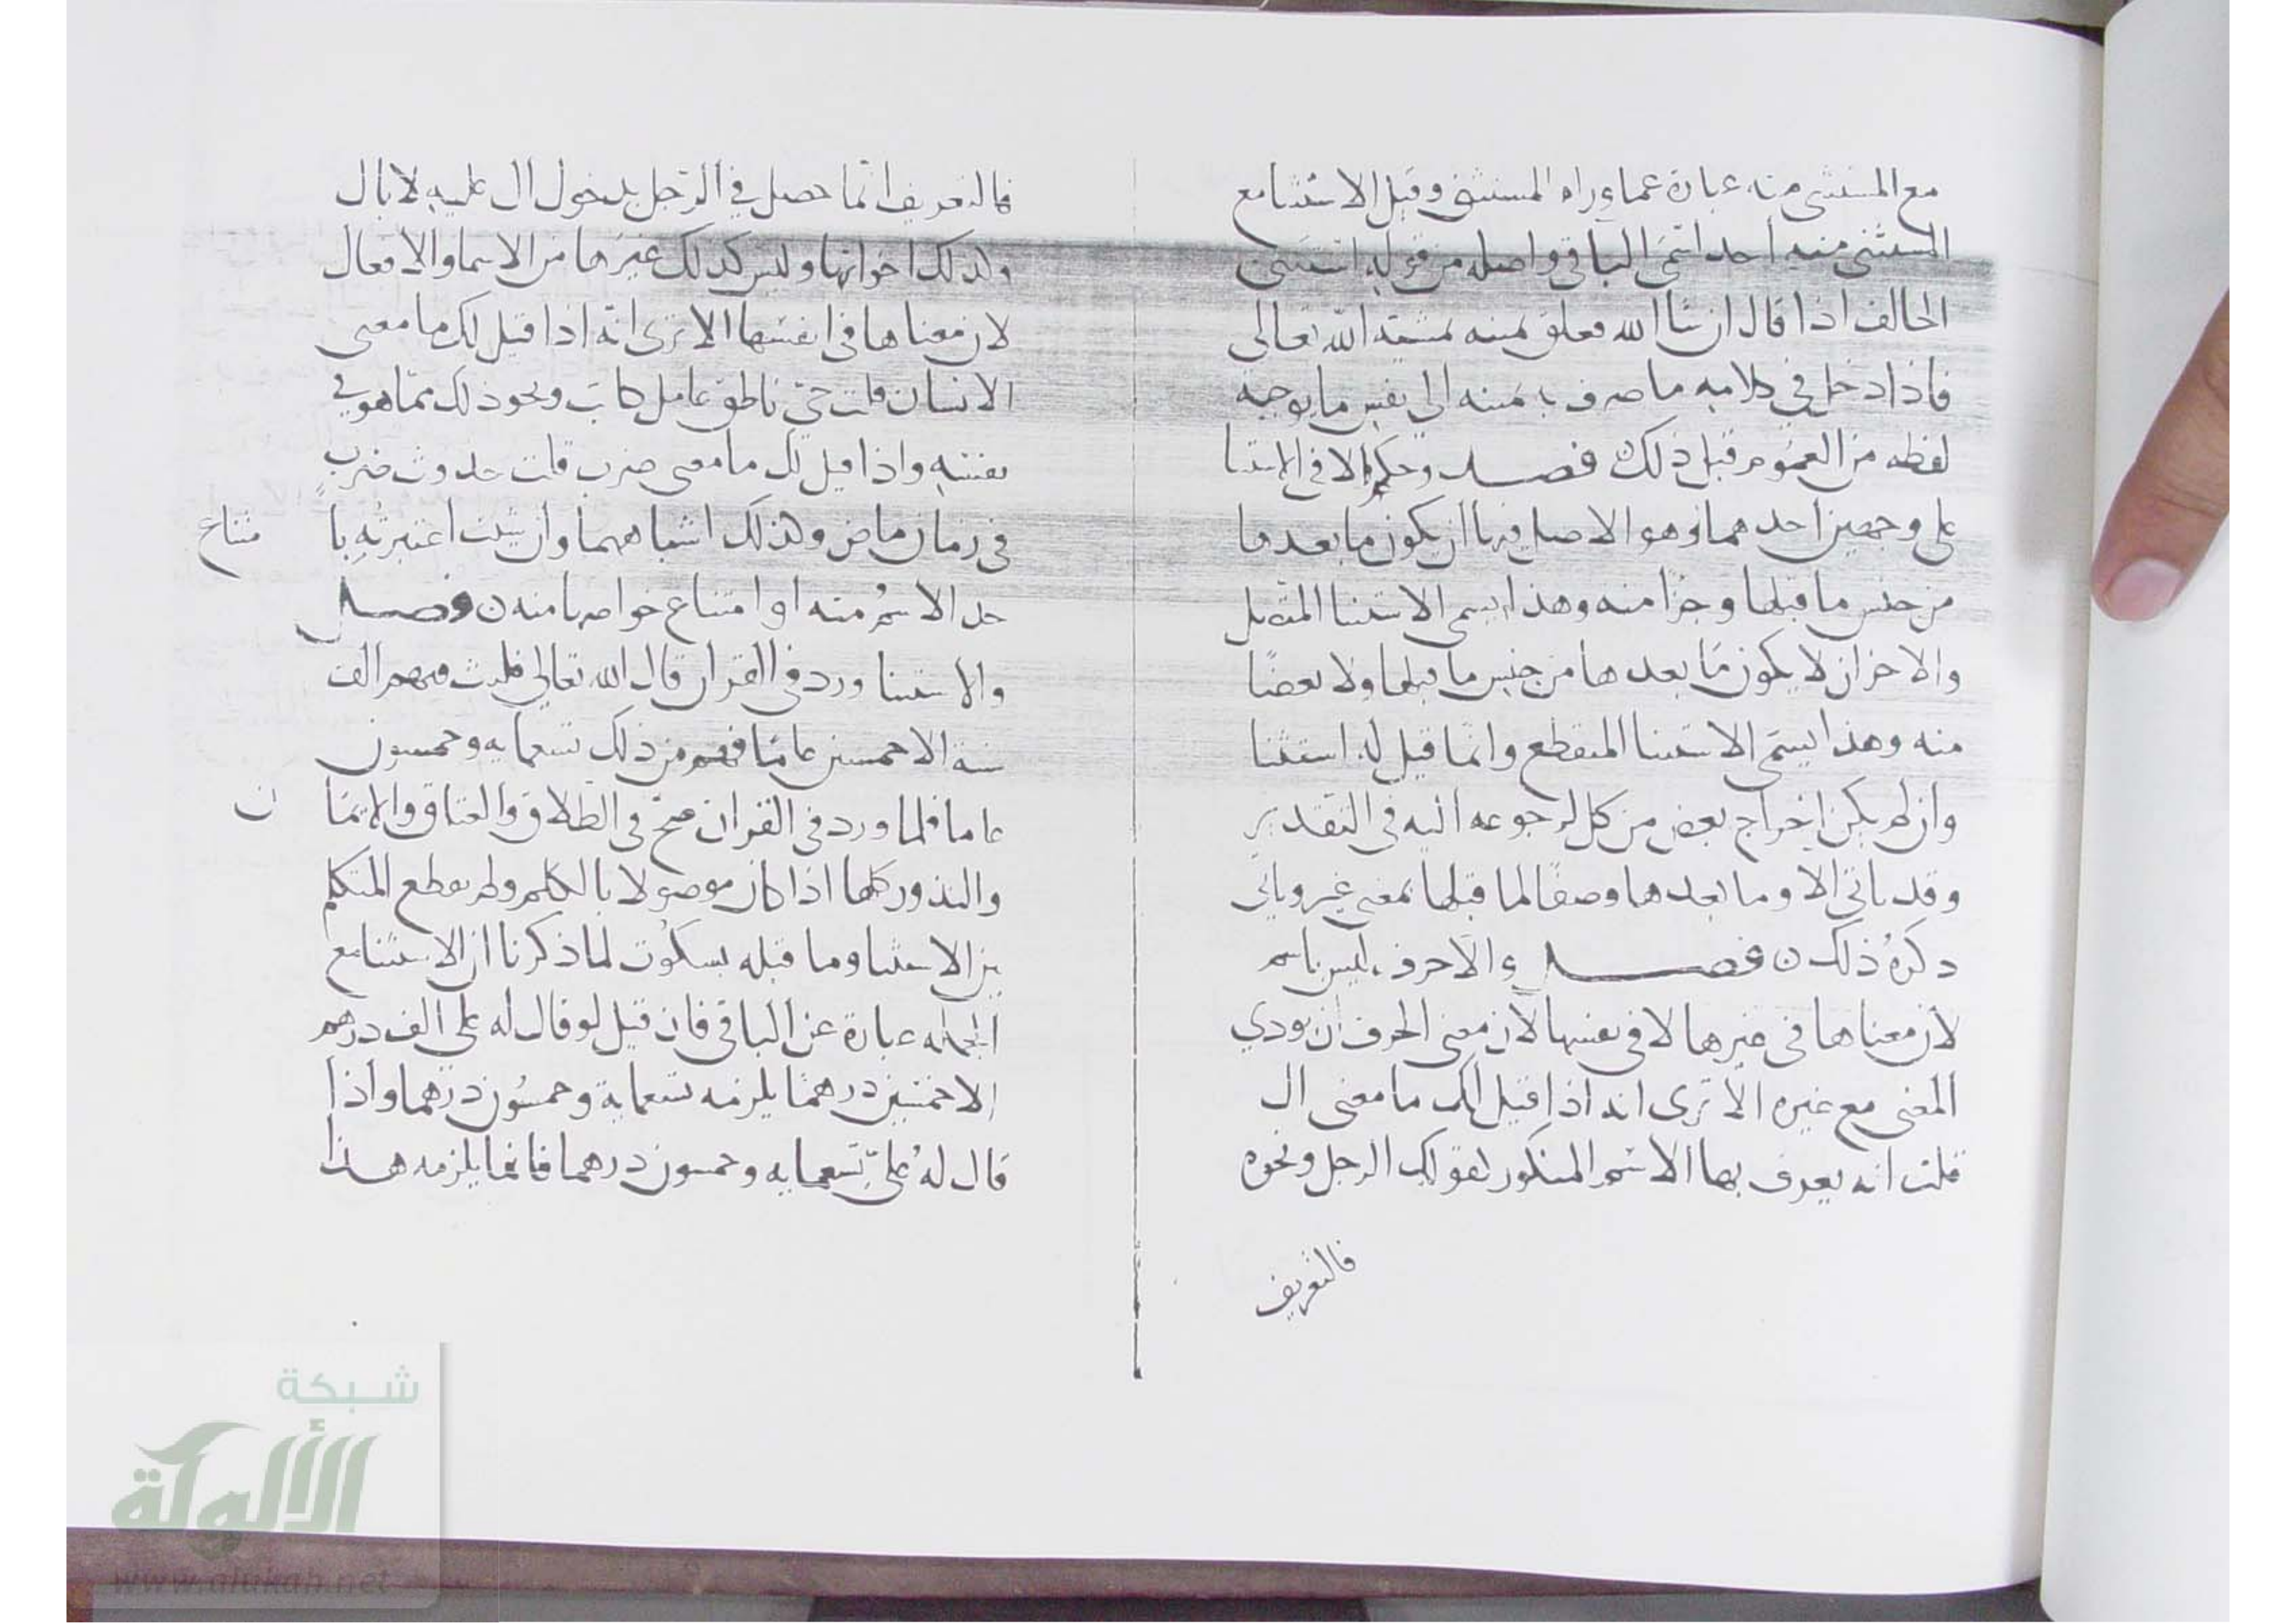 مع المستثنى منه عبارة عما وراء المستثنى وقيل الاستثنا مع
المستثنى منه احد اسمى الباقي واصله من قوله استثنى
الحالف اذا قال ان شا الله فعلق يمينه بمشيته الله تعالى
فاذا دخل في كلامه ما صرف به يمينه الى بعض ما يوجبه
لفظه من العموم قبل ذلك فصل وحكم الا في الاستثنا
على وجهين احدهما وهو الاصل فيها ان يكون ما بعدها
من جنس ما قبلها وجزا منه وهذا يسمى الاستثنا المتصل
والاخر ان لا يكون ما بعدها من جنس ما قبلها ولا بعضًا
منه وهذا يسمى الاستثنا المنقطع وانما قيل له استثنا
وان لم يكن اخراج بعض من كل لرجوعه اليه في التقدير
وقد ياتى الا وما بعدها وصفًا لما قبلها بمعنى غير وياتى
ذكره ذلك ن فصل والاحرف ليس باسم
لان معناها في غيرها لا في نفسها لان معنى الحرف ان يودي
المعنى مع غيره الا ترى انه اذا قيل لك ما معنى ال
قلت انه يعرف بها الاسم المنكور كقولك الرجل ونحوه
فالتعريف
فالتعريف انما حصل في الرجل بدخول ال عليه لا بال
ولذلك اخواتها وليس كذلك غيرها من الاسما والافعال
لان معناها في انفسها الا ترى انه اذا قيل لك ما معنى
الانسان قلت حيّ ناطق عامل كاتب ونحو ذلك مما هو في
نفسه واذا قيل لك ما معنى ضرب قلت حدوث ضربٍ
في زمان ماض ولذلك اشباههما وان شيت اعتبرته با
متناع
حد الاسم منه او امتناع خواصها منه ن فصل
والاستثنا ورد في القران قال الله تعالى فلبث فيهم الف
سنة الا خمسين عامًا ففهم من ذلك تسعمايه وخمسون
عاما فلما ورد في القران صح في الطلاق والعتاق والايما
ن
والنذور كلها اذا كان موصولا بالكلم ولم يقطع المتكلم
بين الاستثنا وما قبله بسكوت لما ذكرنا ان الاستثنا مع
الجمله عبارة عن الباقي فان قيل لو قال له على الف درهم
الا خمسين درهمًا يلزمه تسعماية وخمسون درهما واذا
قال له على تسعمايه وخمسون درهما فانما يلزمه هذا
شبكة
الألوكة
www.alukah.net